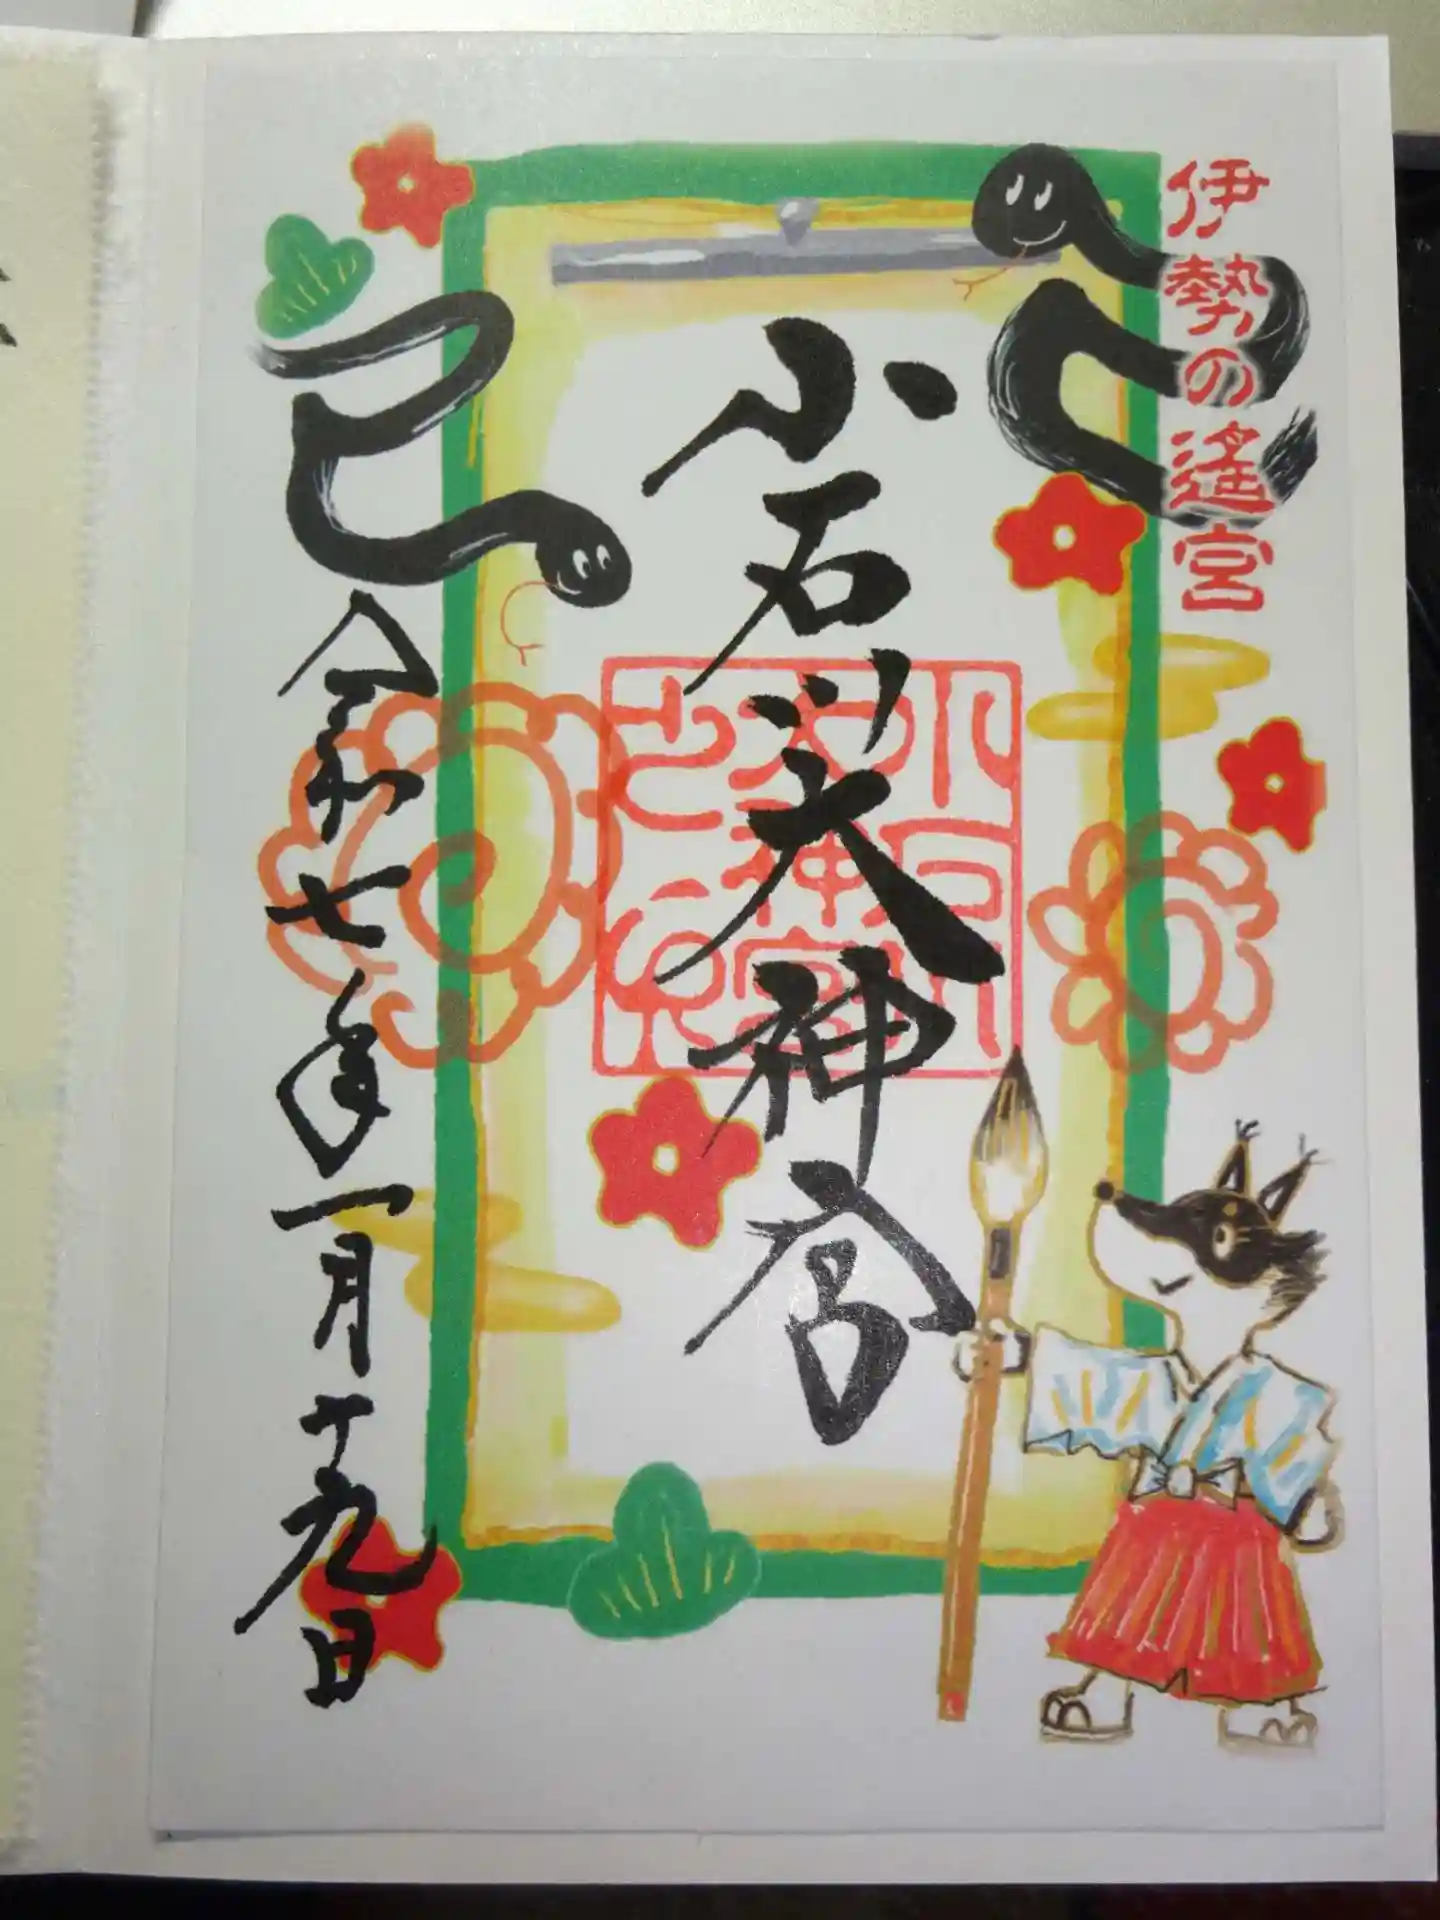 伊勢の遥宮
小石川大神宮
小石川大神宮之印
巳
令和七年一月十九日